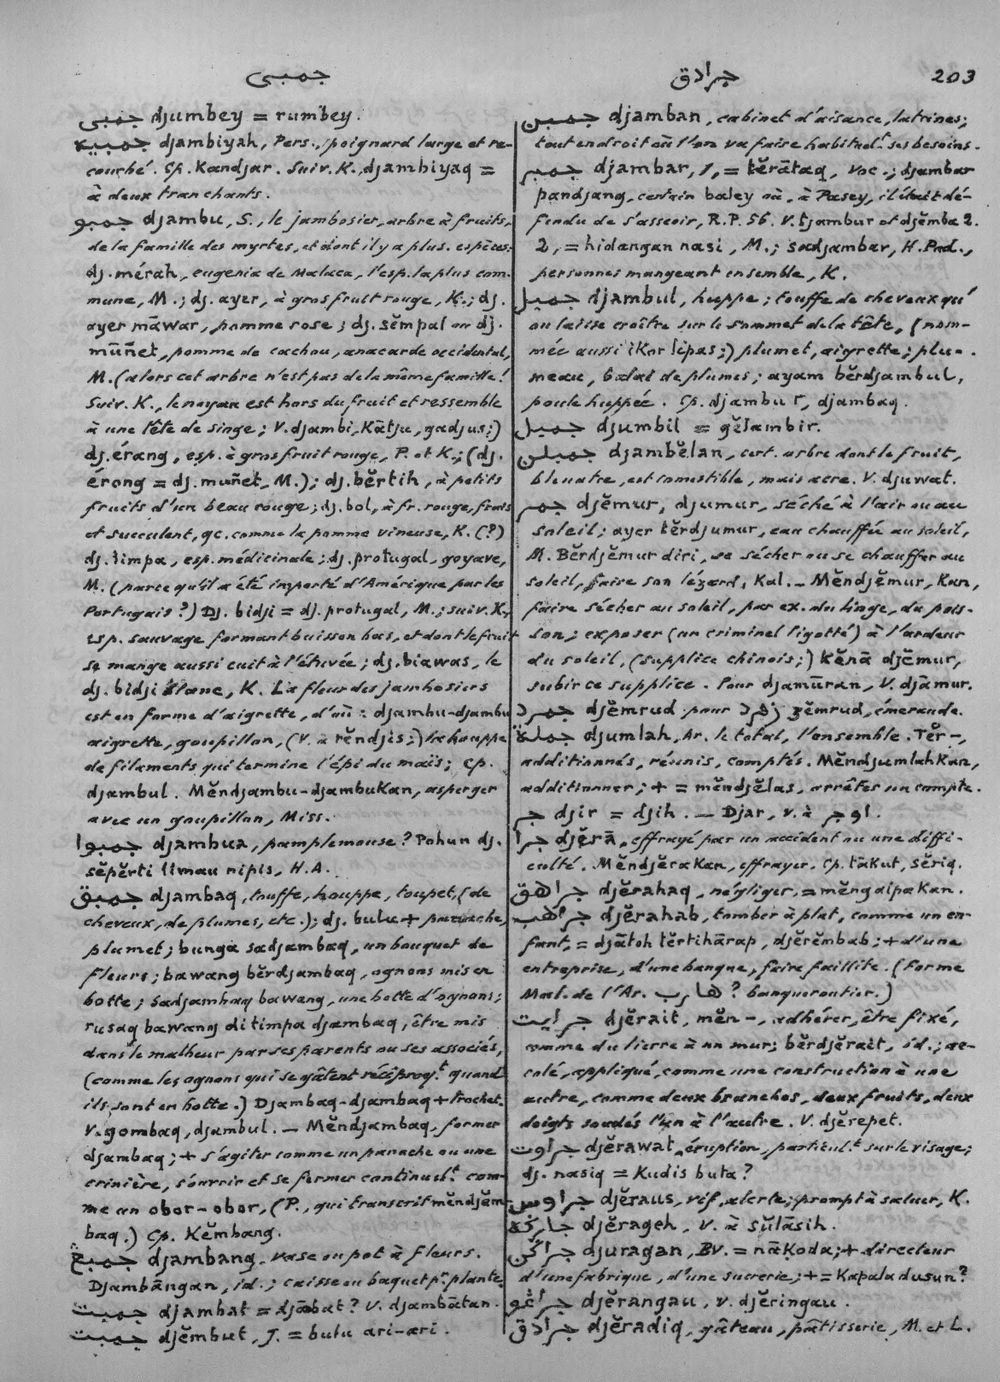 جمبی
جرادق
203
جمبی djumbey = rumbey.
جمبيه djambiyah, Pers., poignard large et re-
courbé. Cp. Kandjar. Suiv. K., djambiyaq =
à deux tranchants.
جمبو djambu, S., le jambosier, arbre à fruits,
de la famille des myrtes, et dont il y a plus. espèces:
dj. mérah, eugenia de Malaca, l'esp. la plus com-
mune, M.; dj. ayer, à gros fruit rouge, K.; dj.
ayer māwar, pomme rose; dj. sĕmpal ou dj.
mūñet, pomme de cachou, anacarde occidental,
M. (alors cet arbre n'est pas de la même famille!
Suiv. K., le noyau est hors du fruit et ressemble
à une tête de singe; V. djambi, Kātju, gadjus;)
dj. érang, esp. à gros fruit rouge, P. et K.; (dj.
érong = dj. muñet, M.); dj. bĕrtih, à petits
fruits d'un beau rouge; dj. bol, à fr. rouge, frais
et succulent, qc. comme la pomme vineuse, K. (?)
dj. limpa, esp. médicinale; dj. protugal, goyave,
M. (parce qu'il a été importé d'Amérique par les
Portugais?) Dj. bidji = dj. protugal, M.; suiv. K.,
esp. sauvage formant buisson bas, et dont le fruit
se mange aussi cuit à l'étuvée; dj. biawas, le
dj. bidji blanc, K. La fleur des jambosiers
est en forme d'aigrette, d'où: djambu-djambu
aigrette, goupillon, (V. à rĕndjis;) la houppe
de filaments qui termine l'épi du maïs; cp.
djambul. Mĕndjambu-djambukan, asperger
avec un goupillon, Miss.
جمبوا djambua, pamplemouse? Pohun dj.
sĕpĕrti limau nipis, H.A.
جمبق djambaq, touffe, houppe, toupet, (de
cheveux, de plumes, etc.); dj. bulu + panache,
plumet; bunga sadjambaq, un bouquet de
fleurs; bawang bĕrdjambaq, ognons mis en
botte; sadjambaq bawang, une botte d'ognons;
rusaq bawang ditimpa djambaq, être mis
dans le malheur par ses parents ou ses associés,
(comme les ognons qui se gâtent réciproqt. quand
ils sont en botte.) Djambaq-djambaq + crochet.
V. gombaq, djambul. — Mĕndjambaq, former
djambaq; + s'agiter comme un panache ou une
crinière, s'ouvrir et se fermer continuelt. com-
me un obor-obor, (P., qui transcrit mĕndjĕm-
baq.) Cp. Kĕmbang.
جمبڠ djambang, vase ou pot à fleurs.
Djambāngan, id.; caisse ou baquet pr. plante
جمبت djambat = djābat? V. djambātan.
جمبت djĕmbut, J. = bulu ari-ari.
جمبن djamban, cabinet d'aisance, latrines;
tout endroit où l'on va faire habituelt. ses besoins.
جمبر djambar, 1, = tĕrātaq, Voc.; djambar
pandjang, certain baley où, à Pasey, il était dé-
fendu de s'asseoir, R.P. 56. V. tjambur et djĕmba 2.
2, = hidangan nasi, M.; sadjambar, H. Pad.,
personnes mangeant ensemble, K.
جمبل djambul, huppe; touffe de cheveux qu'
on laisse croître sur le sommet de la tête, (nom-
mée aussi ikor lipas;) plumet, aigrette; plu-
meau, balai de plumes; ayam bĕrdjambul,
poule huppée. Cp. djambur, djambaq.
جمبل djumbil = gĕlambir.
جمبلن djambĕlan, cert. arbre dont le fruit,
bleuatre, est comestible, mais acre. V. djuwat.
جمر djĕmur, djumur, séché à l'air ou au
soleil; ayer tĕrdjumur, eau chauffée au soleil,
M. Bĕrdjĕmur diri, se sécher ou se chauffer au
soleil, faire son lézard, Kal. — Mĕndjĕmur, Kan,
faire sécher au soleil, par ex. du linge, du pois-
son; exposer (un criminel ligotté) à l'ardeur
du soleil, (supplice chinois;) Kĕnā djĕmur,
subir ce supplice. Pour djamūran, V. djāmur.
جمرد djĕmrud pour زمرد zĕmrud, émeraude.
جملة djumlah, Ar. le total, l'ensemble. Tĕr-,
additionnés, réunis, comptés. Mĕndjumlahkan,
additionner; + = mĕndjĕlas, arrêter un compte.
جر djir = djih. — Djar, v. à اوجر.
جرا djĕrā, effrayé par un accident ou une diffi-
culté. Mĕndjĕrakan, effrayer. Cp. tākut, sĕriq.
جراهق djĕrahaq, négliger, = mĕngalpakan.
جراهب djĕrahab, tomber à plat, comme un en-
fant, = djātoh tĕrtihārap, djĕrĕmbab; + d'une
entreprise, d'une banque, faire faillite. (Forme
Mal. de l'Ar. هارب ? banqueroutier.)
جرايت djĕrait, mĕn-, adhérer, être fixé,
comme du lierre à un mur; bĕrdjĕrait, id.; ac-
colé, appliqué, comme une construction à une
autre, comme deux branches, deux fruits, deux
doigts soudés l'un à l'autre. V. djĕrepet.
جراوت djĕrawat, éruption, particult. sur le visage;
dj. nasiq = Kudis buta?
جراوس djĕraus, vif, alerte; prompt à saluer, K.
جراݢه djĕrageh, V. à sŭlāsih.
جراݢن djuragan, BV. = nāKoda; + directeur
d'une fabrique, d'une sucrerie; + = Kapala dusun?
جراڠو djĕrangau, v. djĕringau.
جرادق djĕradiq, gâteau, pâtisserie, M. et L.